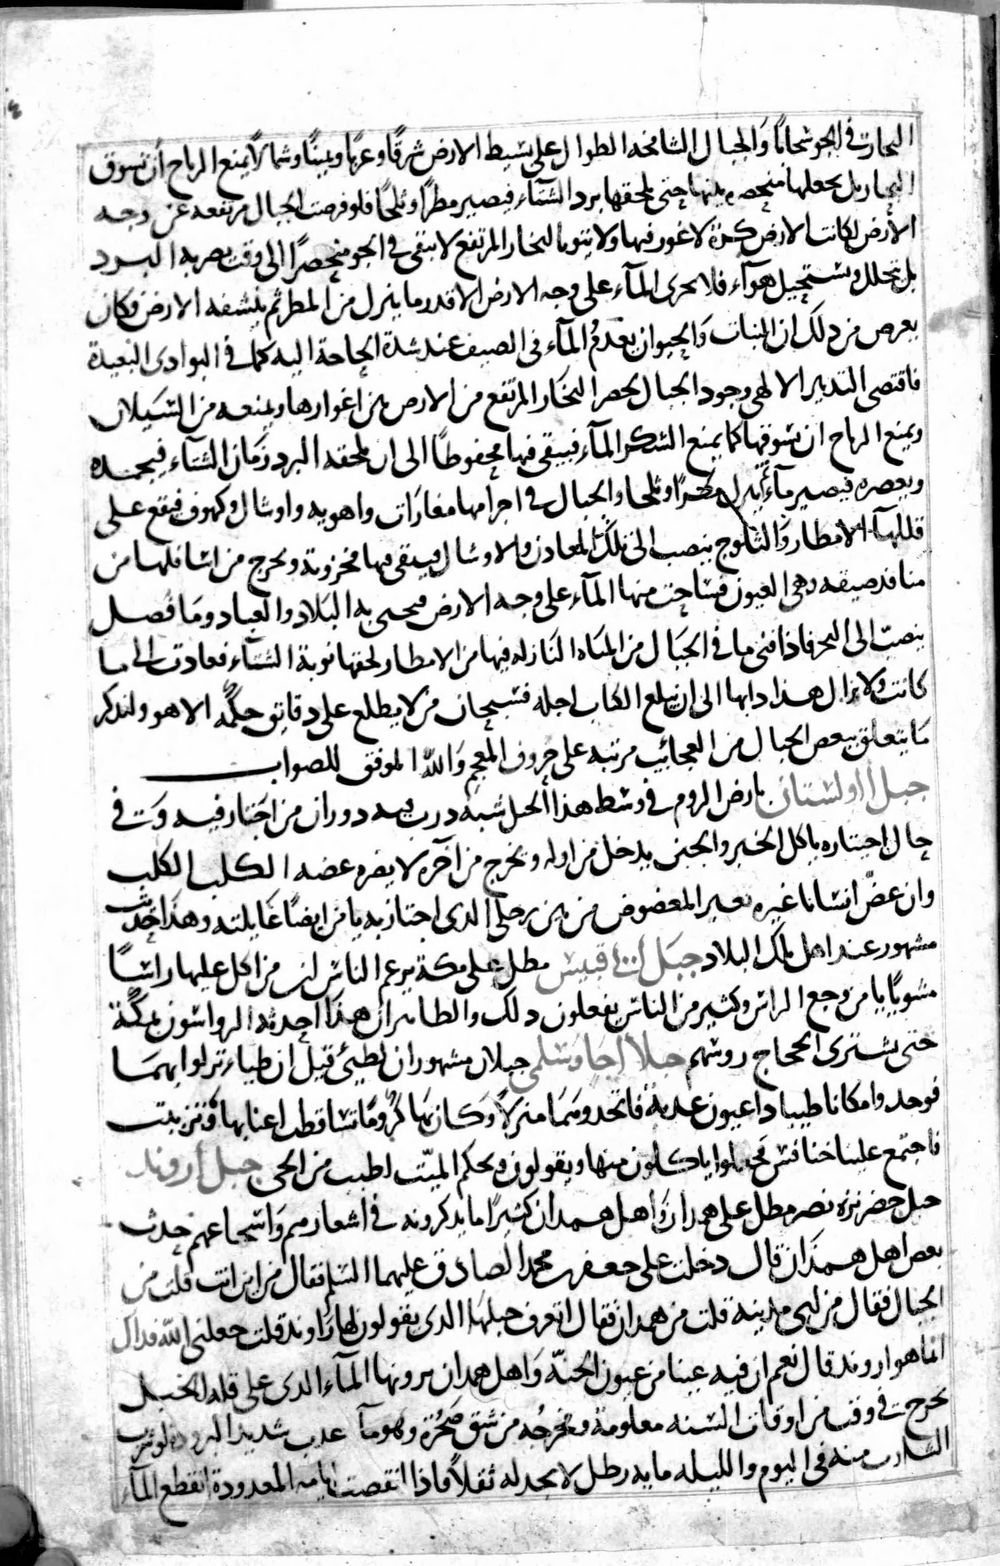 البخارات في الجو سحابا والجبال الشامخه الطوال على بسيط الارض شرقا وغربا ويمينا وشمالا يمنع الرياح أن تسوق
البخار بل يجعلها منحصره بينها حتى يلحقها برد الشتآء فيصير مطرا وثلجا فلو فرضت الجبال مرتفعه عن وجه
الأرض لكانت الارض كرة لا غور فيها ولا نتو فالبخار المرتفع لا يبقى في الجو منحصرا الى وقت يضربه البرد
بل يتحلل ويستحيل هوآء فلا يجرى المآء على وجه الارض الا قدر ما ينزل من المطر ثم ينشفه الارض وكان
يعرض من ذلك ان النبات والحيوان يعدم المآء في الصيف عند شدة الحاجة اليه كما في البوادى البعيدة
فاقتضى التدبير الالهى وجود الجبال ليحصر البخار المرتفع من الارض بين اغوارها ويمنعه من السيلان
ويمنع الرياح ان تسوقها كما يمنع السكر المآء فيبقى فيها محفوظا الى ان يلحقه البرد زمان الشتآء فيجمده
ويعصره فيصير مآء ثم ينزل مطرا وثلجا والجبال في اجرامها مغارات واهويه واوشال وكهوف فيقع على
قللها الامطار والثلوج ينصب الى تلك المعادن والاوشال فيبقى فيها مخزونة ويخرج من اسافلها من
منافذ ضيقه وهى العيون فساحت منها المآء على وجه الارض فيحيى به البلاد والعباد وما فضل
ينصب الى البحر فاذا فنى ما في الجبال من المياه النازله فيها من الامطار لحقها نوبة الشتآء فعادت الى ما
كانت ولا يزال هذا دابها الى ان يبلغ الكتاب اجله فسبحان من لا يطلع على دقايق حكمه الا هو ولنذكر
ما يتعلق ببعض الجبال من العجائب مرتبه على حروف المعجم والله الموفق للصواب
جبل أولستان بارض الروم في وسط هذا الجبل شبه درب فيه دوران من اجتاز فيه وكان في
حال اجتيازه ياكل الخبز والجبن يدخل من اوله ويخرج من آخره لا يضره عضه الكلب الكلب
وان عض انسانا غيره فعبر المعضوض من بين رجلى الذى اجتاز به يامن ايضا غايلته وهذا حديث
مشهور عند اهل تلك البلاد جبل ابو قبيس مطل على مكة يزعم الناس ان من اكل عليها راسا
مشويا يامن وجع الراس وكثير من الناس يفعلون ذلك والظاهر ان هذا احدثه الرواسون بمكة
حتى يشترى الحجاج روسهم جبلا أجا وسلمى جبلان مشهوران لطيئ قيل ان طياء نزلوا بهما
فوجدوا مكانا طيبا ذا عيون عذبة فاتخذوهما منزلا وكان بها كروم تساقط اعنابها فتزببت
فاجتمع عليها خنافس فجعلوا ياكلون منها ويقولون ويحكم الميت اطيب من الحى جبل أروند
جبل خضر نزه نضر مطل على همدان واهل همدان كثيرا ما يذكرونه في اشعارهم واسجاعهم حدث
بعض اهل همدان قال دخلت على جعفر بن محمد الصادق عليهما السلم فقال من اين انت قلت من
الجبال فقال من اى مدينة قلت من همدان فقال اتعرف جبلها الذى يقولون لها راوند قلت جعلنى الله فداك
انما هو اروند قال نعم ان فيه عينا من عيون الجنة واهل همدان يرونها المآء الذى على قله الجبل
يخرج في وقت من اوقات السنه معلومة ومخرجه من شق صخرة وهو مآ عذب شديد البرد ولو شرب
الشارب منه في اليوم والليله مايه رطل لا يجد له ثقلا فاذا انقضت ايامه المعدودة انقطع المآء